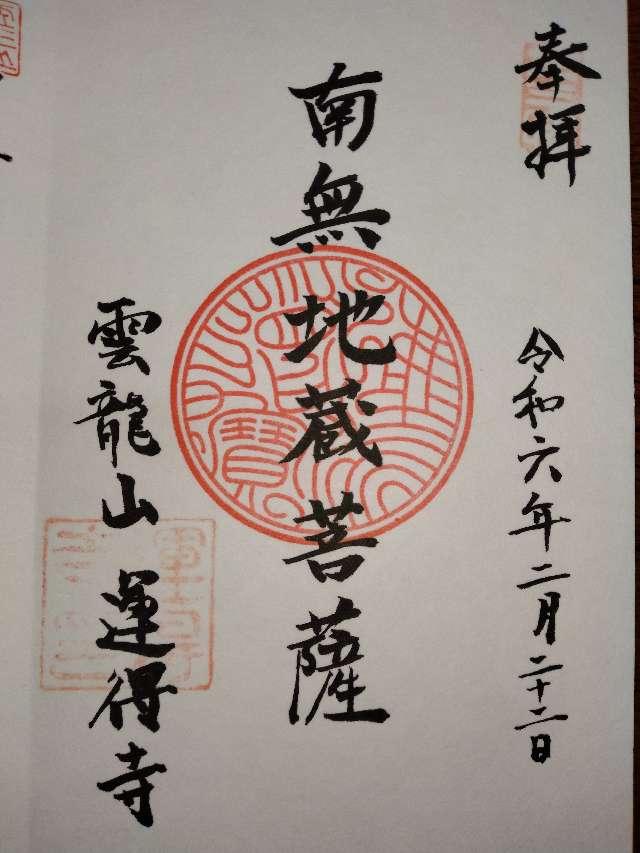 奉拝
令和六年二月二十二日
南無地蔵菩薩
雲龍山 運得寺